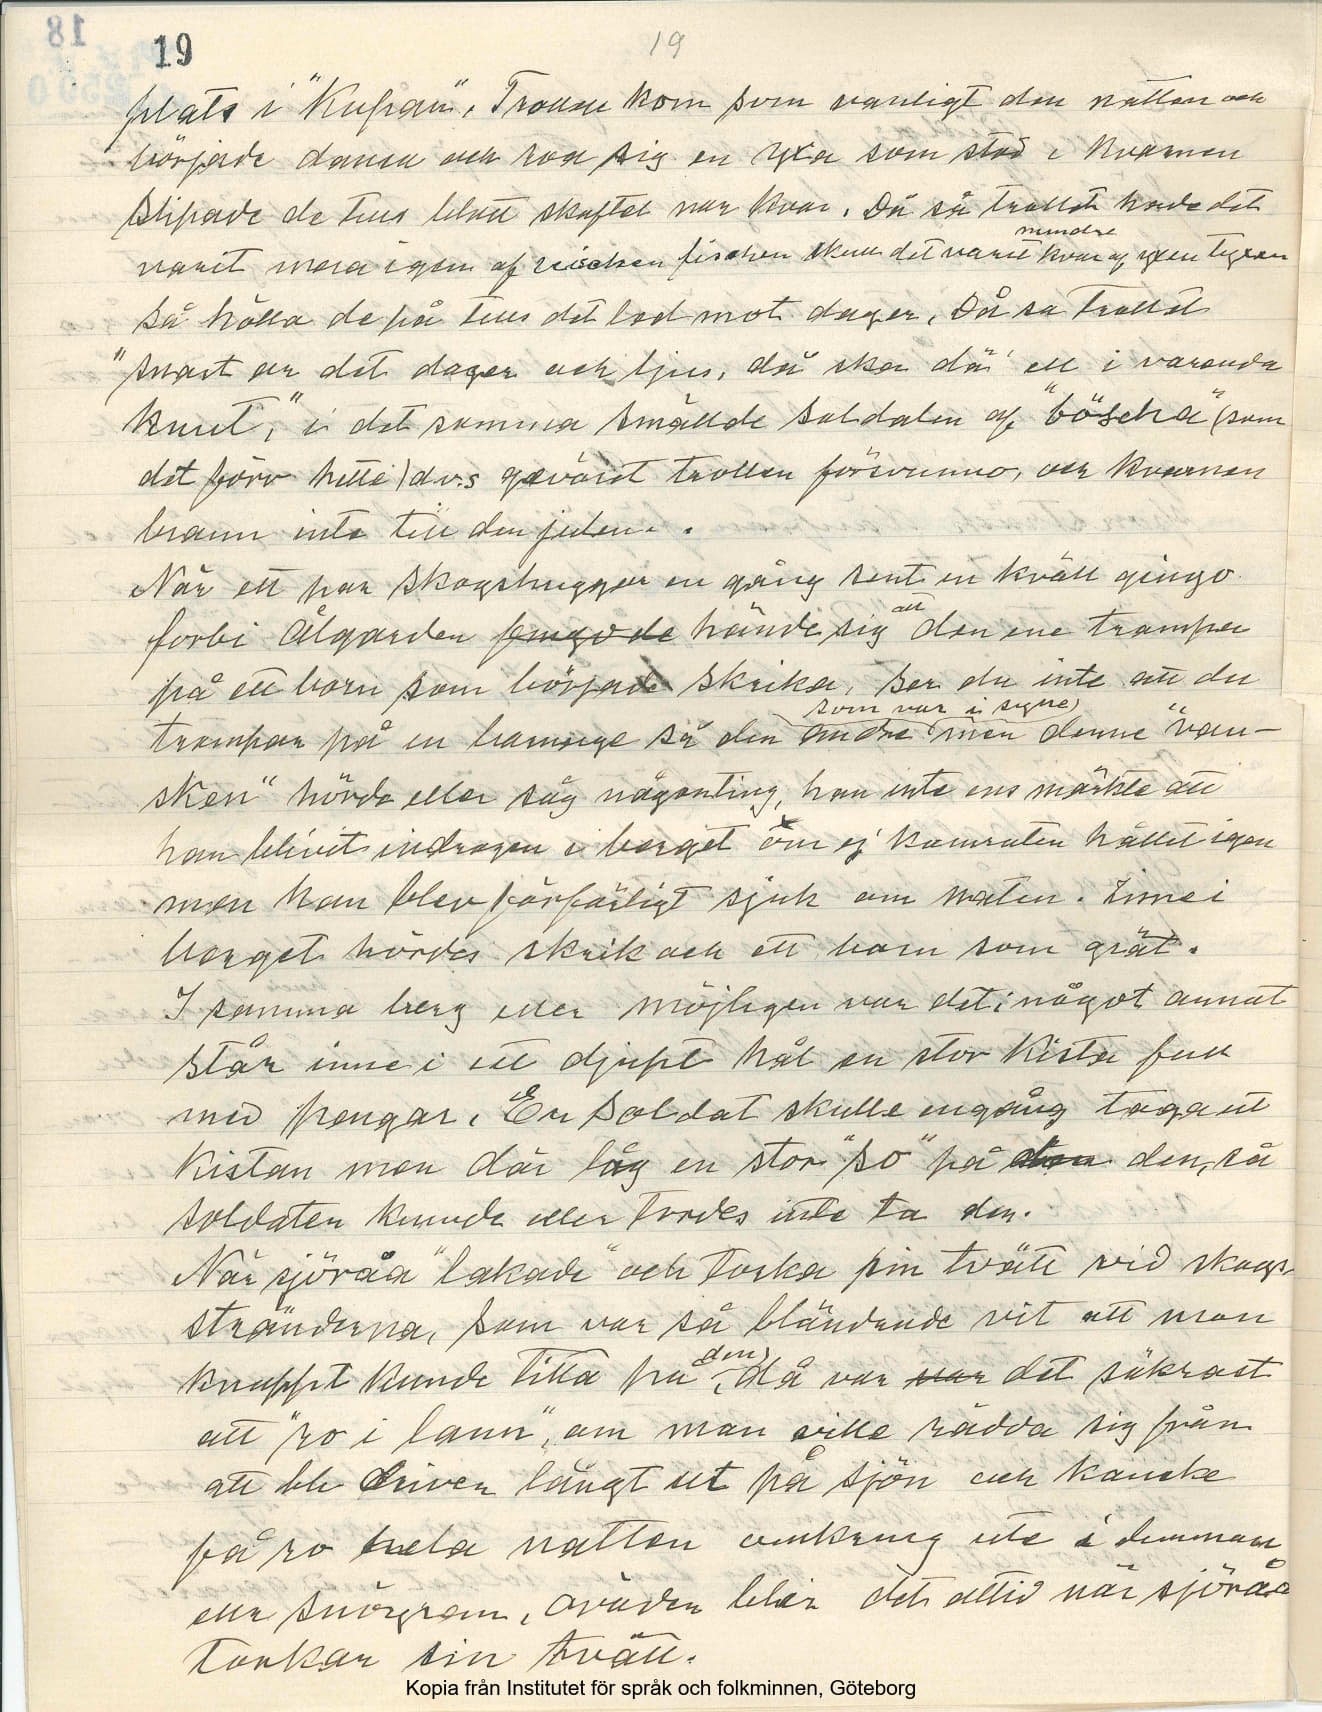 19
19
plats i "Kupan". Trollen kom som vanligt den natten och
började dansa och roa sig en yxa som stod i kvarnen
slipade de tills blott skaftet var kvar. Då sa trollet hade det
varit mera igen af fischen skulle det varit mindre kvar af yxen
så hölla de på tills det led mot dager. Då sa trollet
"snart är det dager och ljus, då ska dä' ell i varenda
knut," i det samma smällde soldaten af "böscha" (som
det förr hette) d.v.s geväret trollen försvunno, och kvarnen
brann inte till den julen.
När ett par skogshuggare en gång sent en kväll gingo
forbi Ålgarden hände sig att den ene trampar
på ett barn som började skrika, ser du inte att du
trampar på en barnunge sa den andre (som var i syne) men denne "van-
sken" hörde eller såg någonting, han inte ens märkte att
han blivit indragen i berget om ej kamraten hållet igen
men han blev förfärligt sjuk om natten. Inne i
berget hördes skrik och ett barn som grät.
I samma berg eller möjligen var det i något annat
står inne i ett djupt hål en stor kista full
med pengar. En soldat skulle engång taga ut
kistan men där låg en stor "so" på den, så
soldaten kunde eller tordes inte ta den.
När sjöråa "lakade" och torka sin tvätt vid skogs-
stränderna, som var så bländande vit att man
knappt kunde titta på den, då var det säkrast
att "ro i lann", om man ville rädda sig från
att bli driven långt ut på sjön och kanske
få ro hela natten omkring ute i dimman
eller snöyran, oväder blir det alltid när sjöråa
torkar sin tvätt.
Kopia från Institutet för språk och folkminnen, Göteborg